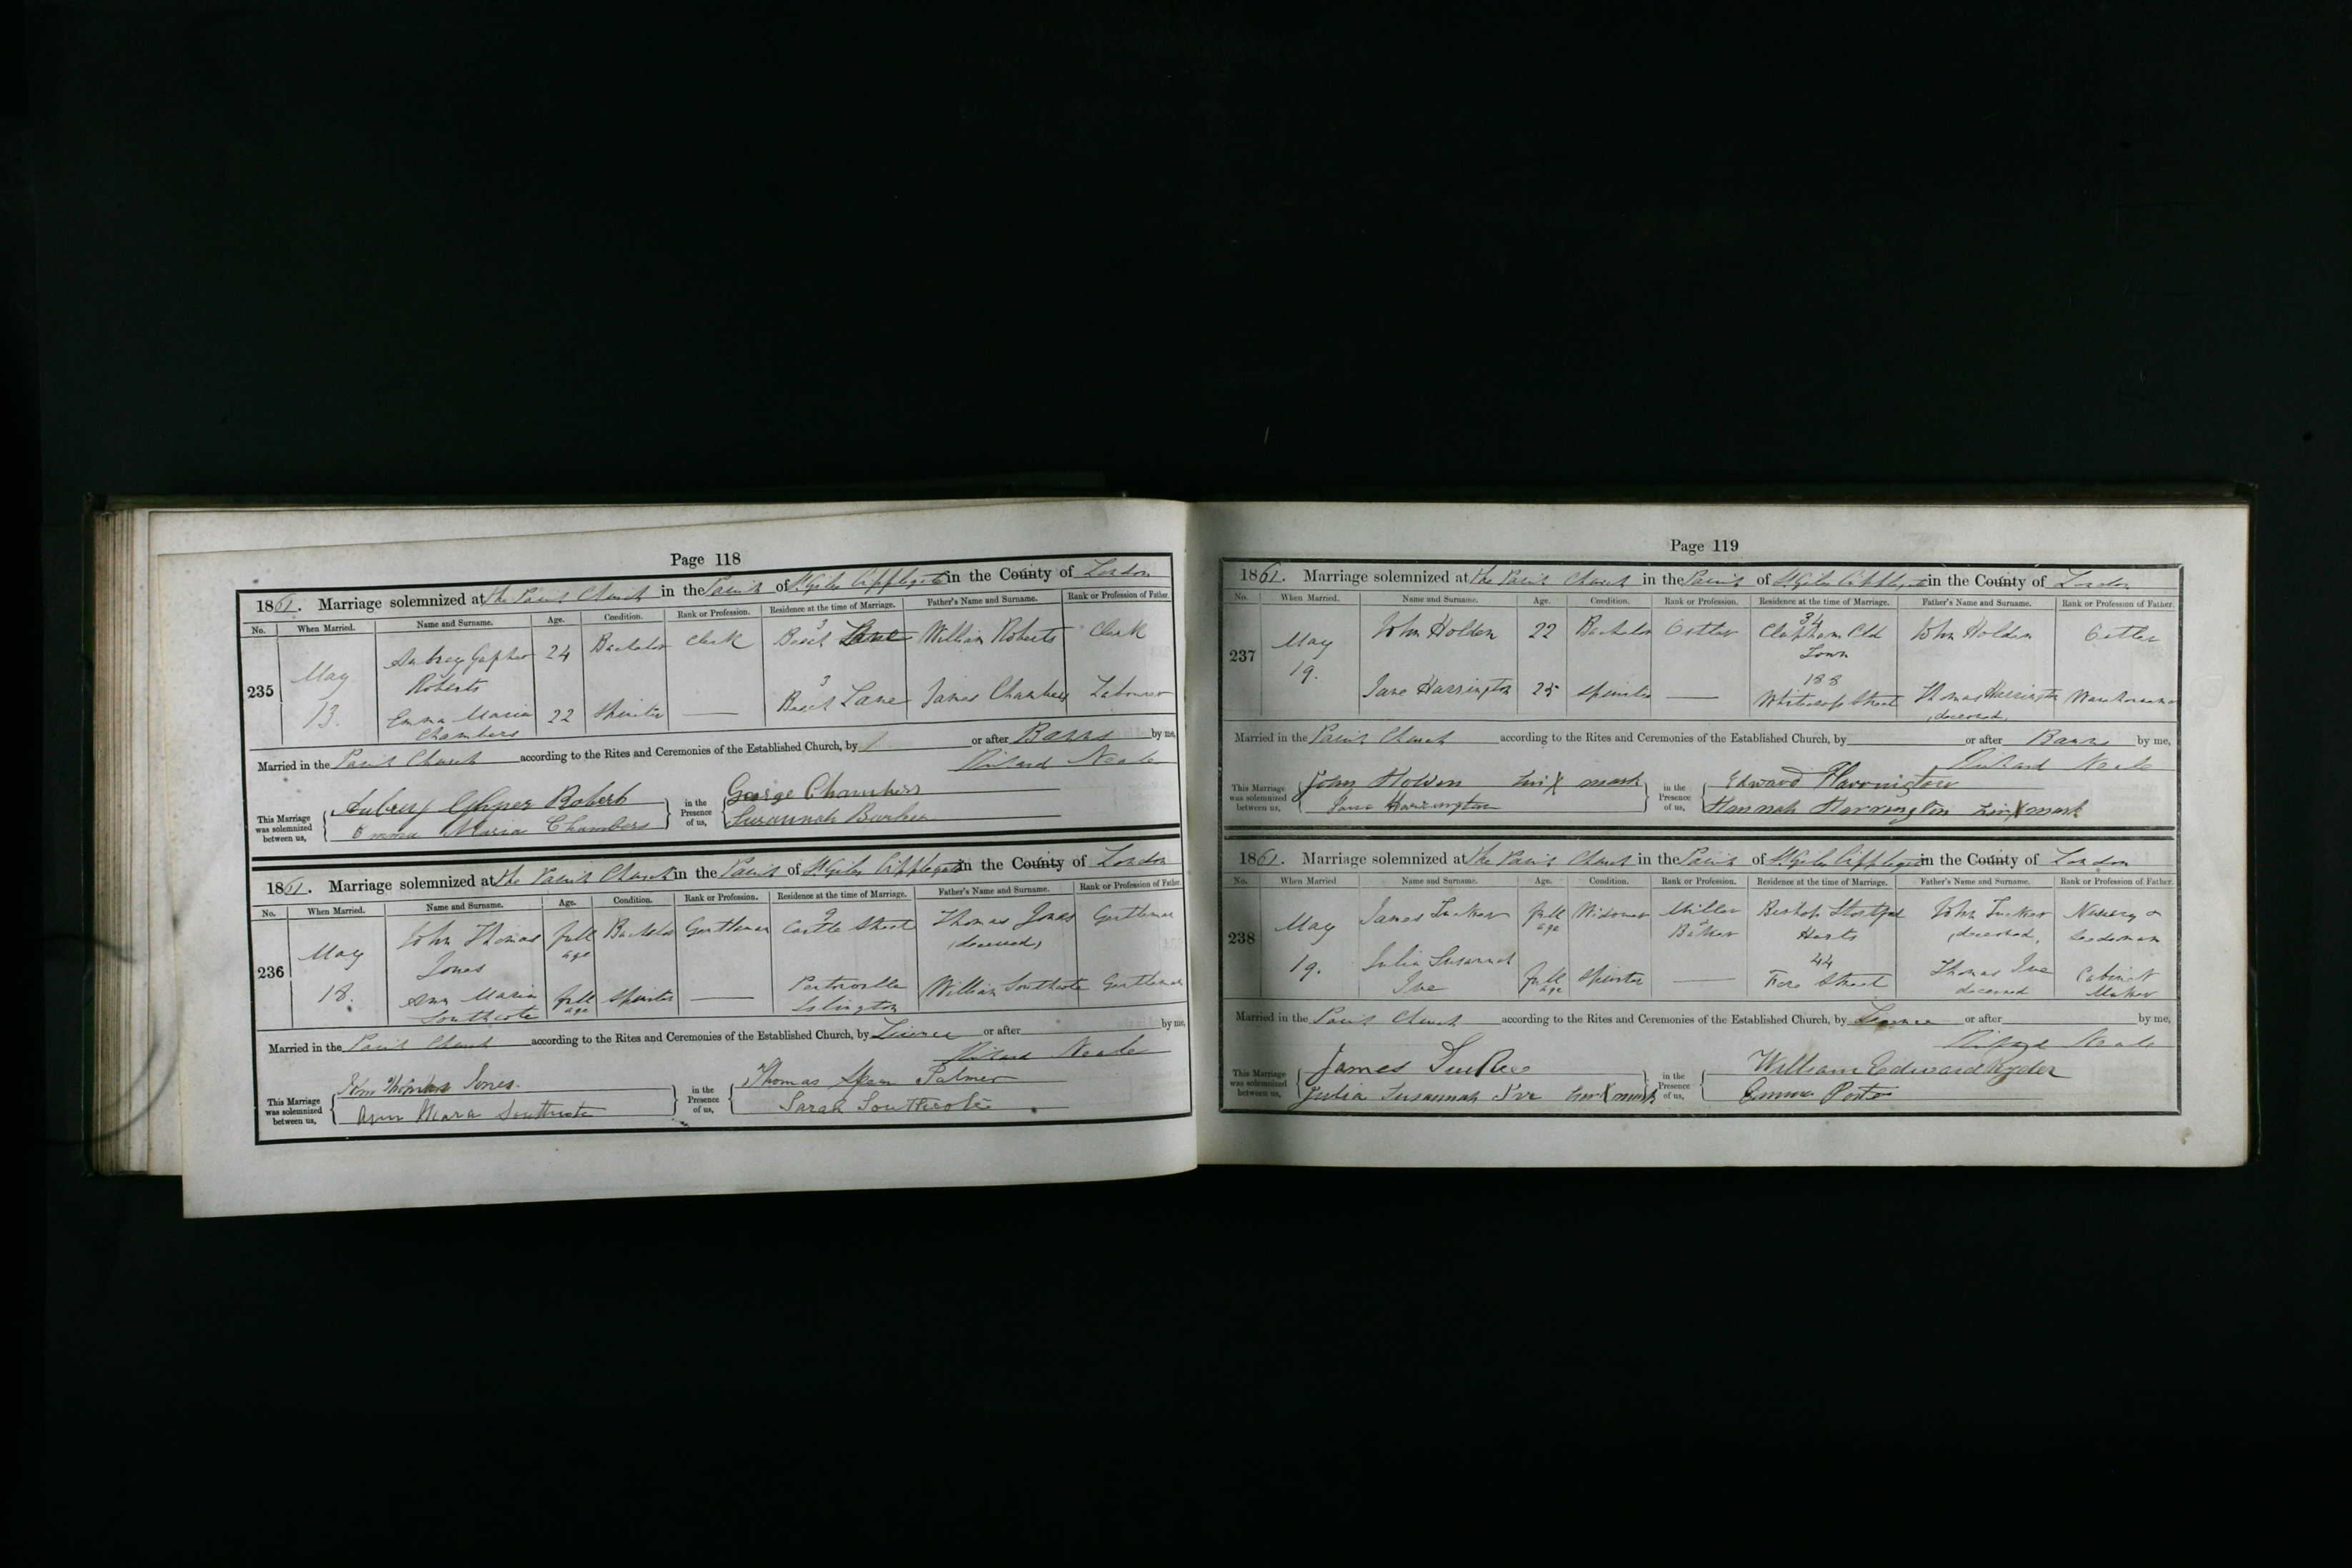 Page 118
1861. Marriage solemnized at The Parish Church in the Parish of St Giles Cripplegate in the County of London
No. When Married. Name and Surname. Age. Condition. Rank or Profession. Residence at the time of Marriage. Father's Name and Surname. Rank or Profession of Father.
235 May 13. Aubrey Roberts 24 Bachelor Clerk 3 Beech Lane William Roberts Clerk
Emma Maria Chambers 22 Spinster — 3 Beech Lane James Chambers Labourer
Married in the Parish Church according to the Rites and Ceremonies of the Established Church, by or after Banns by me,
Richard Neale
This Marriage was solemnized between us, Aubrey Robert in the Presence of us, George Chambers
Emma Maria Chambers Susannah
1861. Marriage solemnized at The Parish Church in the Parish of St Giles Cripplegate in the County of London
No. When Married. Name and Surname. Age. Condition. Rank or Profession. Residence at the time of Marriage. Father's Name and Surname. Rank or Profession of Father.
236 May 18. John Thomas Jones full age Bachelor Gentleman 9 Castle Street Thomas Jones (deceased) Gentleman
Ann Maria Southcote full age Spinster — Pentonville Islington William Southcote Gentleman
Married in the Parish Church according to the Rites and Ceremonies of the Established Church, by Licence or after by me,
Richard Neale
This Marriage was solemnized between us, John Thomas Jones. in the Presence of us, Thomas Palmer
Ann Maria Southcote Sarah Southcote
Page 119
1861. Marriage solemnized at The Parish Church in the Parish of St Giles Cripplegate in the County of London
No. When Married. Name and Surname. Age. Condition. Rank or Profession. Residence at the time of Marriage. Father's Name and Surname. Rank or Profession of Father.
237 May 19. John Holden 22 Bachelor Ostler 34 Clapham Old Town John Holden Ostler
Jane Harrington 25 Spinster — 188 Whitecross Street Thomas Harrington deceased Warehouseman
Married in the Parish Church according to the Rites and Ceremonies of the Established Church, by or after Banns by me,
Richard Neale
This Marriage was solemnized between us, John Holden X mark in the Presence of us, Edward Harrington
Jane Harrington Hannah Harrington X mark
1861. Marriage solemnized at The Parish Church in the Parish of St Giles Cripplegate in the County of London
No. When Married Name and Surname. Age. Condition. Rank or Profession. Residence at the time of Marriage. Father's Name and Surname. Rank or Profession of Father.
238 May 19. James Tucker full age Widower Miller & Baker Bishop Stortford Herts John Tucker (deceased) Nursery & Seedsman
Julia Susannah Ive full age Spinster — 44 Fore Street Thomas Ive deceased Cabinet Maker
Married in the Parish Church according to the Rites and Ceremonies of the Established Church, by Licence or after by me,
Richard Neale
This Marriage was solemnized between us, James Tucker in the Presence of us, William Edward Ryder
Julia Susannah Ive X mark Emma